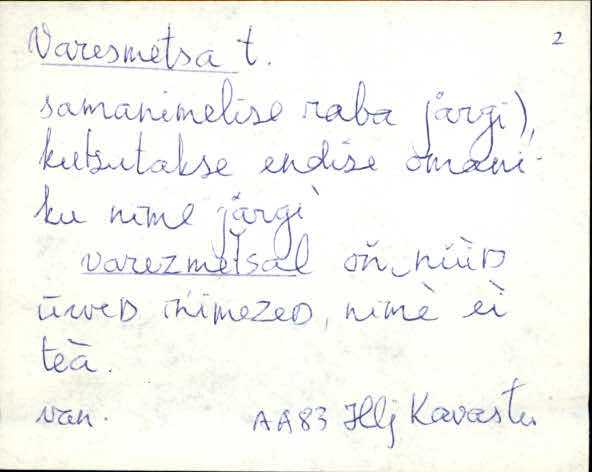 Varesmetsa t. 2
samanimelise raba järgi),
kutsutakse endise omani-
ku nime järgi
varezmetsal oñ, nǖᴅ
ǖveᴅ inimezeᴅ, nimè ei
teà.
van. AA83 Hlj Kavastu